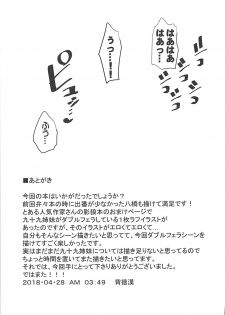 はあはあ
はあっ…
うっ…!
ビュッ
ふぅ…
■あとがき
今回の本はいかがだったでしょうか?
前回弁々本の時に出番が少なかった八橋も描けて満足です!
とある人気作家さんの影狼本のおまけページで
九十九姉妹がダブルフェラしている1枚ラフイラストが
あったのですが、そのイラストがエロくてエロくて…
自分もそんなシーン描きたいと思ってて、今回ダブルフェラシーンを
描けてすごく楽しかったです。
実はまだまだ九十九姉妹については描き足りないと思ってるので
ちょっと時間を置いてまた描きたいと思ってます。
それでは、今回手にとって下さりありがとうございました。
ではまた!!!
2018-04-28 AM 03:49